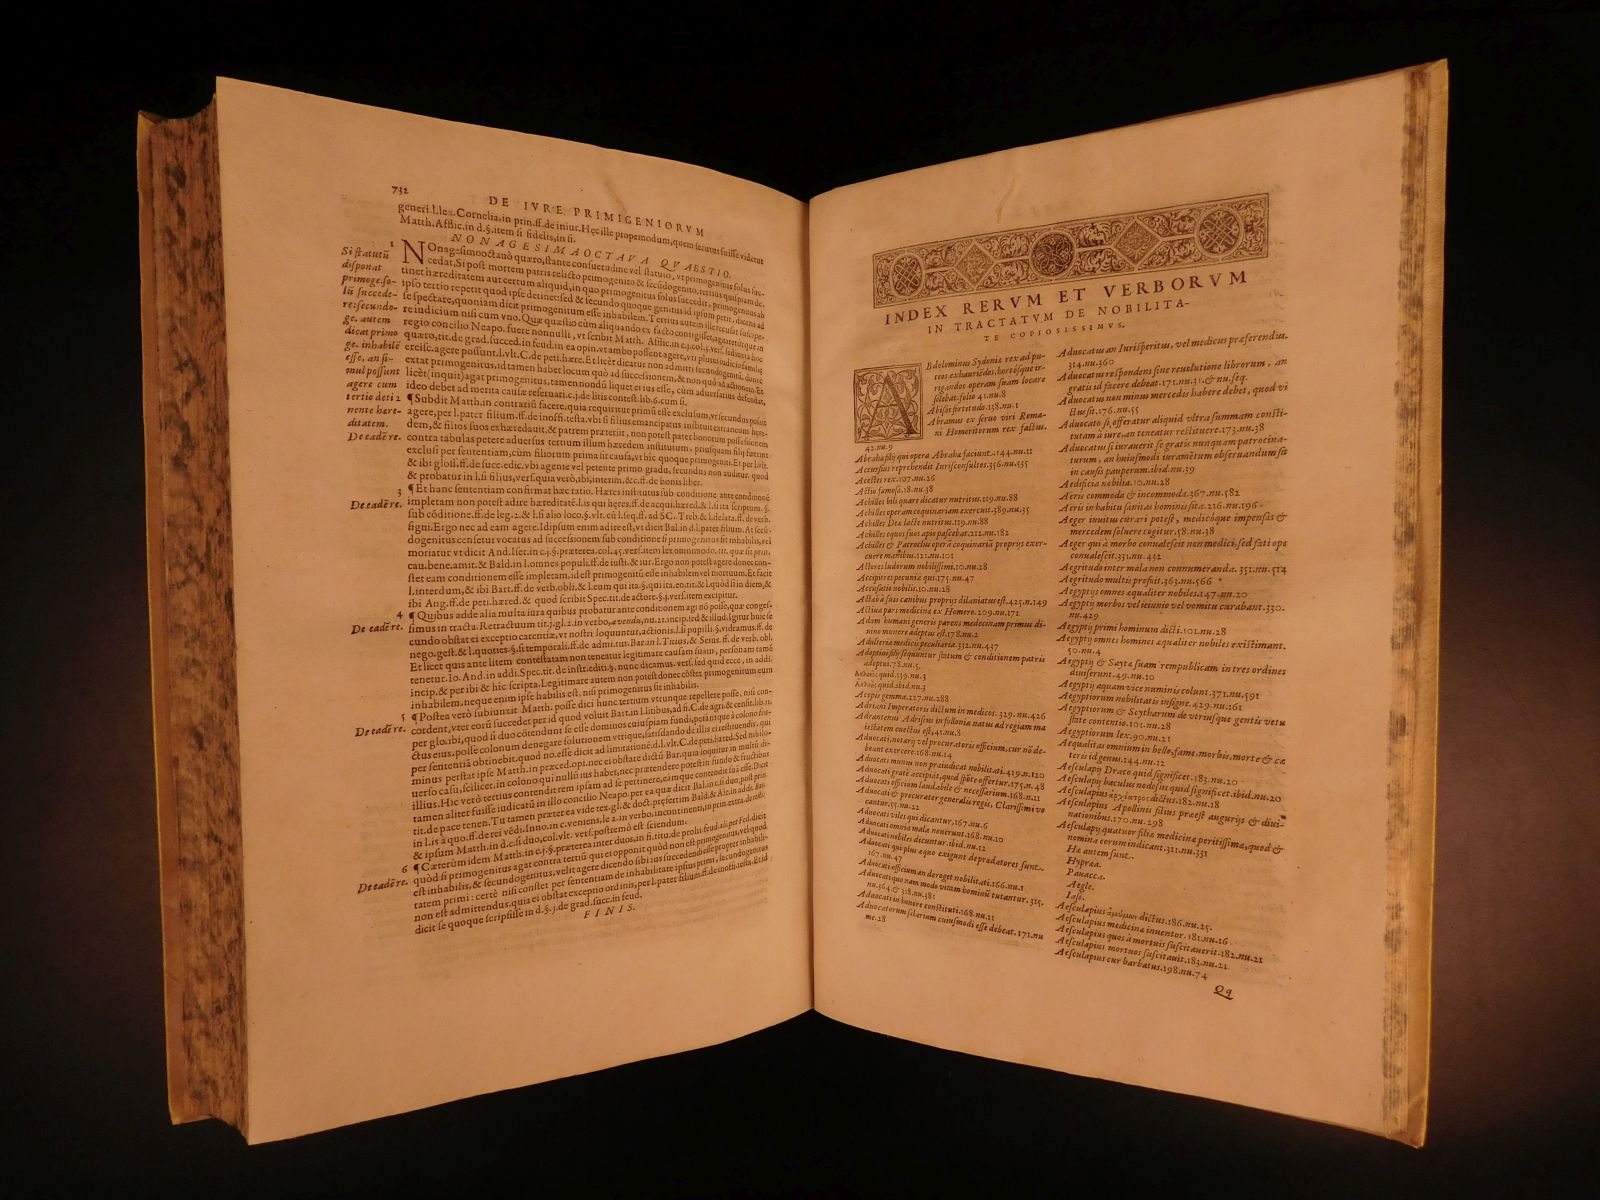 732
DE IVRE PRIMIGENIORVM
generi l. lex. Cornelia, in prin. ff. de iniur. Hęc ille propemodum, quem secutus fuisse videtur
Matth. Afflic. in d. §. item si fidelis, in fi.
NONAGESIMAOCTAVA QVAESTIO.
1
Si statutũ
disponat
primoge. so-
lũ succede-
re: secundo-
ge. autem
dicat primo
ge. inhabilẽ
esse, an si-
mul possunt
agere cum
tertio deti
nente hære-
ditatem.
NOnagesimooctauò quæro, stante consuetudine vel statuto, vt primogenitus solus suc-
cedat, Si post mortem patris relicto primogenito & secũdogenito, tertius quispiam de-
tinet hæreditatem aut certum aliquid, in quo primogenitus solus succedit, primogenitus ab
ipso tertio repetit quod ipse detinet: sed & secundo quoque genitus id ipsum petit, dicens ad
se spectare, quoniam dicit primogenitum esse inhabilem. Tertius autem ille recusat suscipe-
re iudicium nisi cum vno. Quæ quæstio cùm aliquando ex facto contigisset, agitareturque in
regio concilio Neapo. fuere nonnulli, vt scribit Matth. Afflic. in
2
De eadẽ re.
¶ Subdit Matth. in contrariũ facere, quia requisitus primũ esse exclusum, vt secundus possit
agere, per l. pater filium. ff. de inoffi. testa. vbi si filius emancipatus instituit extraneum hære-
dem, & filios suos exhæredauit, & patrem præteriit, non potest pater bonorum possessionem
contra tabulas petere aduersus tertium illum hæredem institutum, priusquam filij fuerint
exclusi per sententiam, cùm filiorum prima sit causa, vt hîc quoque primogeniti. Et per
& ibi gloss. ff. de succ. edic. vbi agente vel petente primo gradu, secundus non auditur, quod
& probatur in l. si filius, vers. quia verò, ibi, interim, &c. ff. de bonis liber.
3
De eadẽ re.
¶ Et hanc sententiam confirmat hæc ratio. Hæres institutus sub conditione ante conditionẽ
impletam non potest adire hæreditatẽ. l. is qui heres. ff. de acqui. hæred. & l. si ita scriptum. §.
sub cõditione. ff. de leg. 2. & l. si alio loco. §. vlt. cũ l. seq. ff. ad SC. Treb. & l. delata. ff. de verb.
signi. Ergo nec ad eam agere. Id ipsum enim adire est, vt dicit Bal. in d. l. pater filium. At secũ-
dogenitus censetur vocatus ad successionem sub conditione si primogenitus sit inhabilis, vel
moriatur
cau. bene. amit. & Bald. in l. omnes populi. ff. de iusti. & iur. Ergo non potest agere donec con-
stet eam conditionem esse impletam, id est primogenitũ esse inhabilem vel mortuum. Et facit
l. interdum, & ibi Bart. ff. de verb. obli. & Leum qui ita. §. qui ita. eo. tit. & l. quòd si in diem, &
ibi Ang. ff. de peti. hæred. & quod scribit Spec. tit. de actore §. j. vers. item excipitur.
4
De eadẽ re.
¶ Quibus adde alia multa iura quibus probatur ante conditionem agi nõ posse, quæ conges-
simus in tracta. Retractuum tit. j. gl. 2. in verbo, avendu, nu. 21. incip. ied & illud. Igitur huic se
cundo obstat ei exceptio carentiæ, vt nostri loquuntur, actionis. l. si pupilli. §. videamus. ff. de
nego. gest. & l. quoties. §. si temporali. ff. ad mu. Bar. in l. Titius, & Seius. ff. de verb. obl.
Et licet quis ante litem contestatam non teneatur legitimare causam suam, personam tamẽ
tenetur. Io. And. in addi. Spec. tit. de instr. editi. §. nunc dicamus. vers. sed quid ecce, in addi.
incip. & per ibi & hîc scripta. Legitimare autem non potest donec cõstet primogenitum eum
inhabilem, neque enim ipse habilis est, nisi primogenitus sit inhabilis.
5
De eadẽ re.
¶ Postea verò subiunxit Matth. posse dici hunc tertium vtrunque repellere posse, nisi con-
cordent, vter eorũ succedet per id quod voluit Bart. in l. litibus, ad fi. C. de agri. & cense. lib. 11.
per glo. ibi, quod si duo cõtendunt se esse dominos cuiuspiam fundi, petántque à colono fru-
ctus eius, posse colonum denegare solutionem vtrique, satisdando de illis ei restituendis, qui
per sententiã obtinebit. quod no. esse dicit ad limitationẽ. d. l. vlt. C. de peti. hæred. Sed nihilo-
minus perstat ipse Matth. in præced. opi. nec ei obstare dictũ Bar. quia loquitur in multũ di-
uerso casu, scilicet, in colono qui nullũ ius habet, nec prætendere potest in fundo & fructibus
illius. Hîc verò tertius contendit rem ipsam ad se pertinere, eámque contendit suã esse. Dicit
tamen aliter fuisse iudicatũ in illo concilio Neapo. per ea quæ dicit Bal. in c. si duo, post prin.
tit. de pace tenen. Tu tamen præterea vide tex. gl. & doct. præsertim Bald. & Ale. in addi. Bar.
in l. is à quo. ff. de rei vẽdi. Inno. in c. veniens. le 2. in verbo, incontinenti, in prin. extra. de testi.
& ipsum Matth. in d. c. si duo, col. vlt. vers. postremò est sciendum.
6
De eadẽ re.
¶ Cæterùm idem Matth. in c. j. §. præterea inter duos, in fi. titu. de prohi. feud. ali. per Fed. dicit
quòd si primogenitus agat contra tertiũ qui ei opponit quòd non est primogenitus, vel quod
est inhabilis, & secundogenitus, velit agere dicendo sibi ius succedendi esse propter inhabili-
tatem primi: certè nisi constet per sententiam de inhabilitate ipsius primi, secundogenitus
non est admittendus. quia ei obstat exceptio ordinis, per l. pater filium. ff. de inoffi. testa. Et id
dicit se quoque scripsisse in d. §. j. de grad. succ. in feud.
FINIS.
INDEX RERVM ET VERBORVM
IN TRACTATVM DE NOBILITA-
TE COPIOSISSIMVS.
ABdolominus Sydoniæ rex ad pu-
teos exhauriẽdos, hortósque ir-
rigandos operam suam locare
solebat. folio 41. nu. 8
Abisei fortitudo. 138. nu. 1
Abramus ex seruo viri Roma-
ni Homeritorum rex factus.
42. nu. 9
Abrahæ filij qui opera Abrahæ faciunt. 144. nu. 11
Accursius reprehendit Iurisconsultos. 356. nu. 535
Acestes rex. 107. nu. 26
Actio famosa. 18. nu. 38
Achilles bilis quare dicatur nutritus. 119. nu. 88
Achilles operam coquinariam exercuit. 389. nu. 35
Achilles Dea lacte nutritus. 119. nu. 88
Achilles equos suos apio pascebat. 212. nu. 182
Achilles & Patroclus operã coquinariã proprijs exer-
cuere manibus. 121. nu. 101
Actores ludorum nobilissimi. 10. nu. 28
Accipitres pecuniæ qui. 175. nu. 47
Accusatio nobilis. 10. nu. 28
Actæõ à suis canibus proprijs dilaniatus est. 425. n. 149
Actiua pars medicinæ ex Homero. 209. nu. 171
Adam humani generis parens medecinam primus di-
uino munere adeptus est. 178. nu. 2
Adulteria medicis peculiaria. 332. nu. 437
Adoptiui filij sequuntur statum & conditionem patris
adoptui. 78. nu. 5.
quid. 139. nu. 3
quid. ibid. nu. 3
Acopis gemma. 227. nu. 288
Adriani Imperatoris dictum in medicos. 329. nu. 426
Adrantenus Adrisus in fullonia natus ad regiam ma-
iestatem euectus est, 41. nu. 8
Aduocati, notarij vel procuratoris officium, cur nõ de-
beant exercere. 168. nu. 14
Aduocati munus non præiudicat nobilitati. 419. n. 120
Aduocati gratis accipiãt, quod spõte offertur. 175. n. 48
Aduocati officium laudabile & necessarium. 168. n. 11
Aduocati & procurator generalis regis, Clarissimi vo
cantur. 55. nu. 22
Aduocati viles qui dicantur. 167. nu. 6
Aduocati omnia mala nouerunt. 168. nu. 10
Aduocati nobiles dicuntur. ibid. nu. 12
Aduocati qui plus æquo exigunt depradatores sunt.
167. nu. 47
Aduocati officium an deroget nobilitati. 166. nu. 1
Aduocati quo nam modo vitam hominũ tutantur. 315.
nu. 364 & 318. nu. 381
Aduocati in honore constituti. 168. nu. 11
Aduocatorum silarium cuiusmodi esse debeat. 171. nu
me. 28
Aduocatus an Iurisperitus, vel medicus præferendus.
314. nu. 360
Aduocatus respondens sine reuolutione librorum, an
gratis id facere debeat. 171. nu. 31. & nu. seq.
Aduocatus non minus mercedis habere debet, quod vi
ctus sit. 176. nu. 55
Aduocato si, offeratur aliquid vltra summam consti-
tutam à iure, an teneatur restituere. 173. nu. 38
Aduocatus si iurauerit se gratis nunquam patrocina-
turum, an huiusmodi iuramẽtum obseruandum sit
in causis pauperum. ibid. nu. 39
Aedificia nobilia. 10. nu. 28
Aeris commoda & incommoda. 367. nu. 582
Aeris in habitu sanitas hominis sita. 216. nu. 196
Aeger inuitus curari potest, medicóque impensas &
mercedem soluere cogitur. 58. nu. 38
Aeger qui à morbo conualescit non medici, sed fati ope
conualescit. 331. nu. 432
Aegritudo inter mala non connumeranda. 351. nu. 514
Aegritudo multis profuit. 363. nu. 566
Aegyptij omnes æqualiter nobiles. 147. nu. 20
Aegyptij morbos vel ieiunio vel vomitu curabant. 330.
nu. 429
Aegyptij primi hominum dicti. 101. nu. 28
Aegyptij omnes homines æqualiter nobiles existimant.
50. nu. 4
Aegyptij & Saytæ suam rempublicam in tres ordines
diuiserunt. 49. nu. 10
Aegyptij aquam vice numinis colunt. 371. nu. 591
Aegyptiorum nobilitatis insigne. 429. nu. 161
Aegyptiorum & Scytharum de vtriusque gentis vetu
state contentio. 101. nu. 28
Aegyptiorum lex. 90. nu. 21
Aequalitas omnium in bello, fame, morbis, morte & cæ
teris id genus. 144. nu. 12
Aesculapij Draco quid significet. 183. nu. 20
Aesculapij baculus nodosus quid significet. ibid. nu. 20
Aesculapius ἀρχίατρος dictus. 182. nu. 18
Aesculapius Apollinis filius præest augurijs & diui-
nationibus. 170. nu. 298
Aesculapij quatuor filiæ medicinæ peritissimæ, quod &
nomina eorum indicant. 311. nu. 331
Hæ autem sunt.
Hygæa.
Panacæa.
Aegle.
Iaso.
Aesculapius dictus. 186. nu. 25.
Aesculapius medicinæ inuentor. 181. nu. 16
Aesculapius quos à mortuis suscitauerit. 182. nu. 21
Aesculapius mortuos suscitauit. 183. nu. 21
Aesculapius cur barbatus. 198. nu. 74
Qq